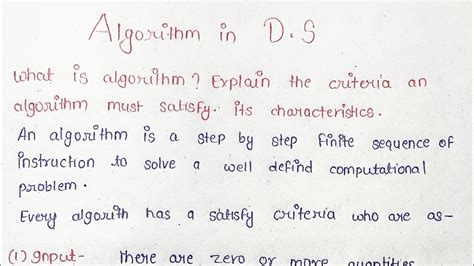 Algorithm in D.S
what is algorithm? Explain the criteria an
algorithm must satisfy. its characteristics.
An algorithm is a step by step finite sequence of
instruction to solve a well defind computational
problem.
Every algorith has a satisfy criteria who are as-
(1) Input- there are zero or more quantities